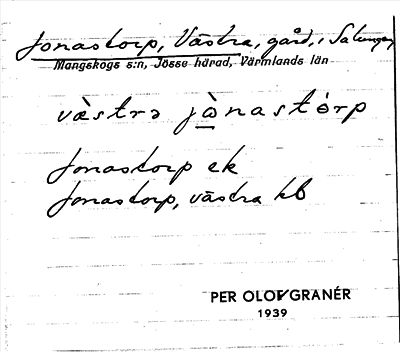 Jonastorp, Västra, gård, i Salungen
Mangskogs s:n, Jösse härad, Värmlands län
væ̀strə jònastórp
Jonastorp ek
Jonastorp, västra kb
PER OLOV GRANÉR
1939